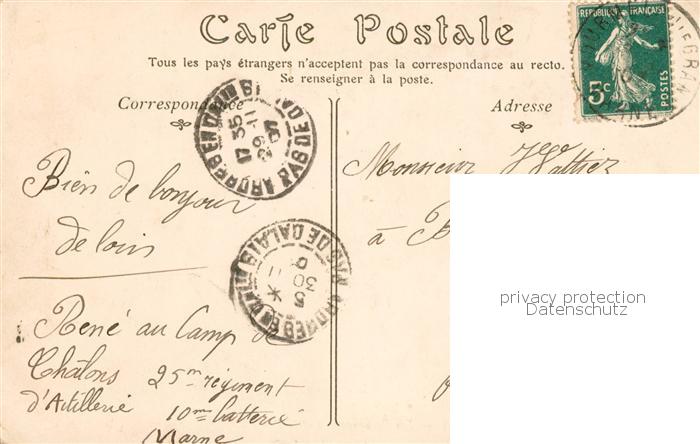 Carte Postale
Tous les pays étrangers n'acceptent pas la correspondance au recto.
Se renseigner à la poste.
Correspondance
Adresse
RÉPUBLIQUE FRANÇAISE
5c
POSTES
17 35
29 -11
07
PAS DE CALAIS
Monsieur
à
Bien de bonjour
de loin
PAS DE CALAIS
30
René au Camp de
Châlons 25me régiment
d'Artillerie 10me batterie
Marne
privacy protection
Datenschutz